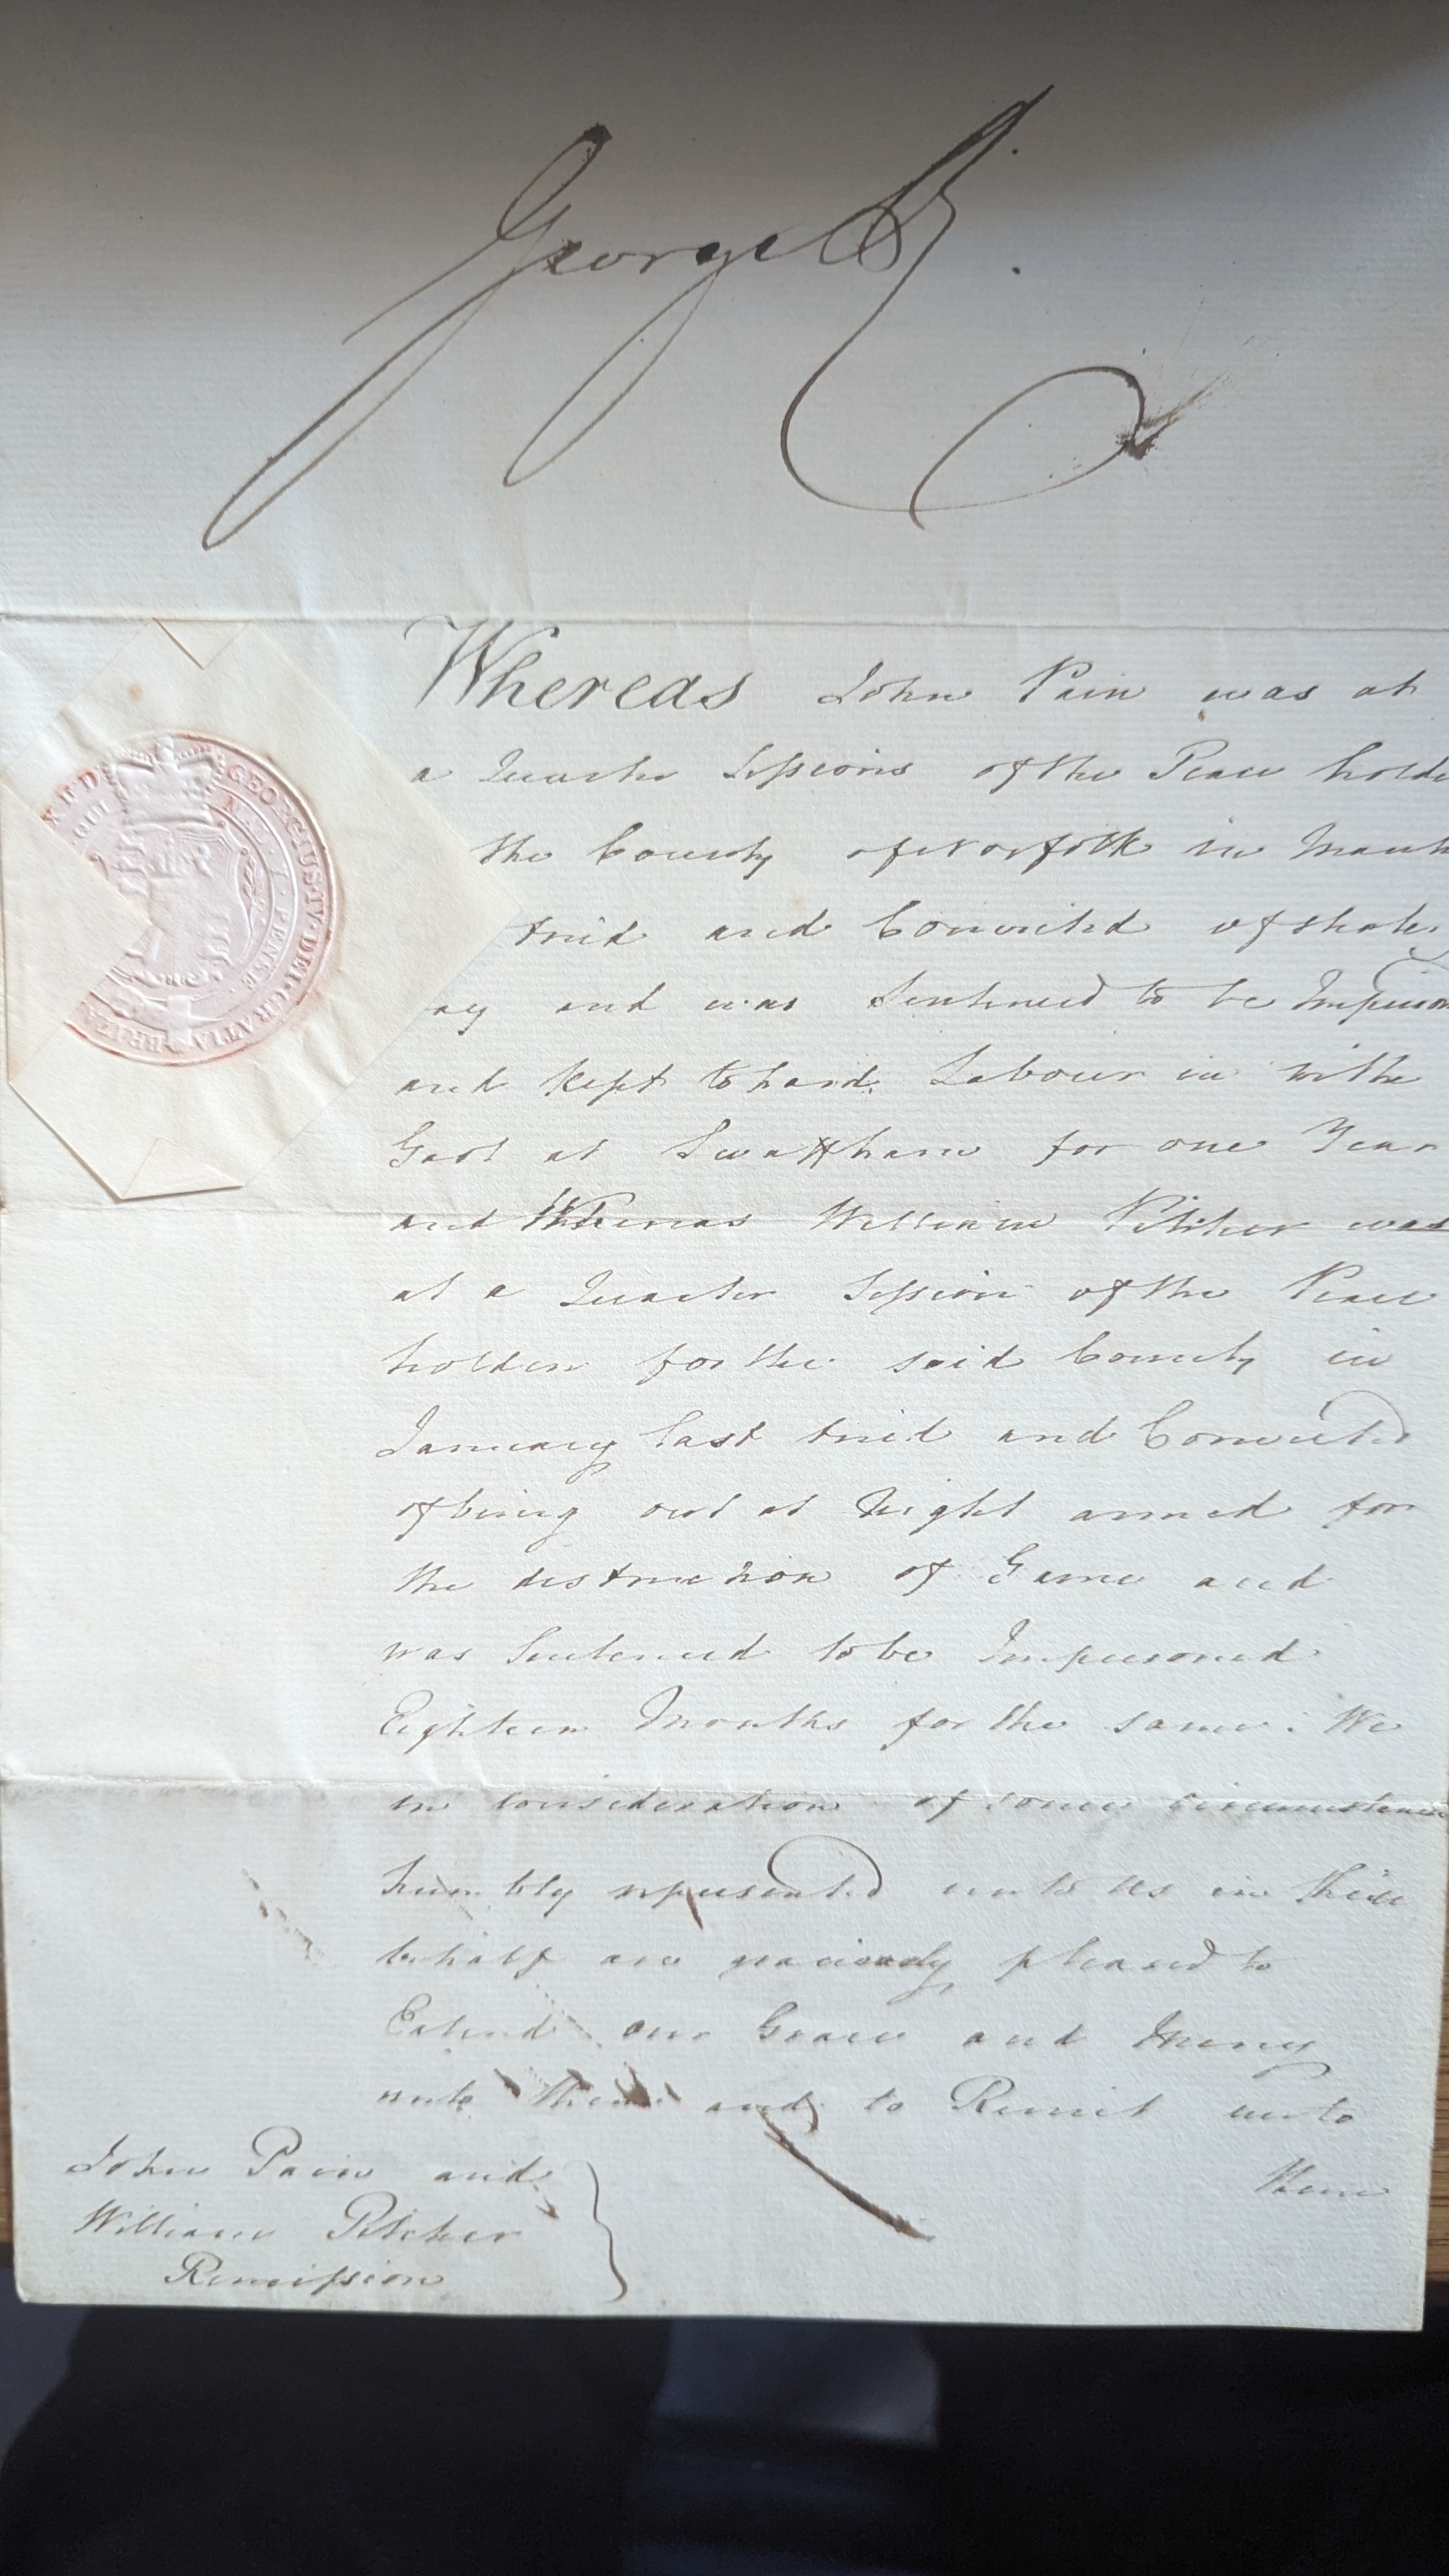 George R.
Whereas John Pain was at
a Quarter Sessions of the Peace holde
the County of Norfolk in March
tried and Convicted of
and was Sentenced to be Imprison
and kept to hard Labour in the
Gaol at Swaffham for one Year
and Whereas William Pitcher was
at a Quarter Session of the Peace
holden for the said County in
January last tried and Convicted
of being out at Night armed for
the distruction of Game and
was Sentenced to be Imprisoned
Eighteen Months for the same: We
in consideration of some circumstances
humbly represented unto us in their
behalf are graciously pleased to
Extend our Grace and Mercy
unto them and to Remit unto
them
John Pain and
William Pitcher
Remission
GEORGIUS·IV·DEI·GRATIA